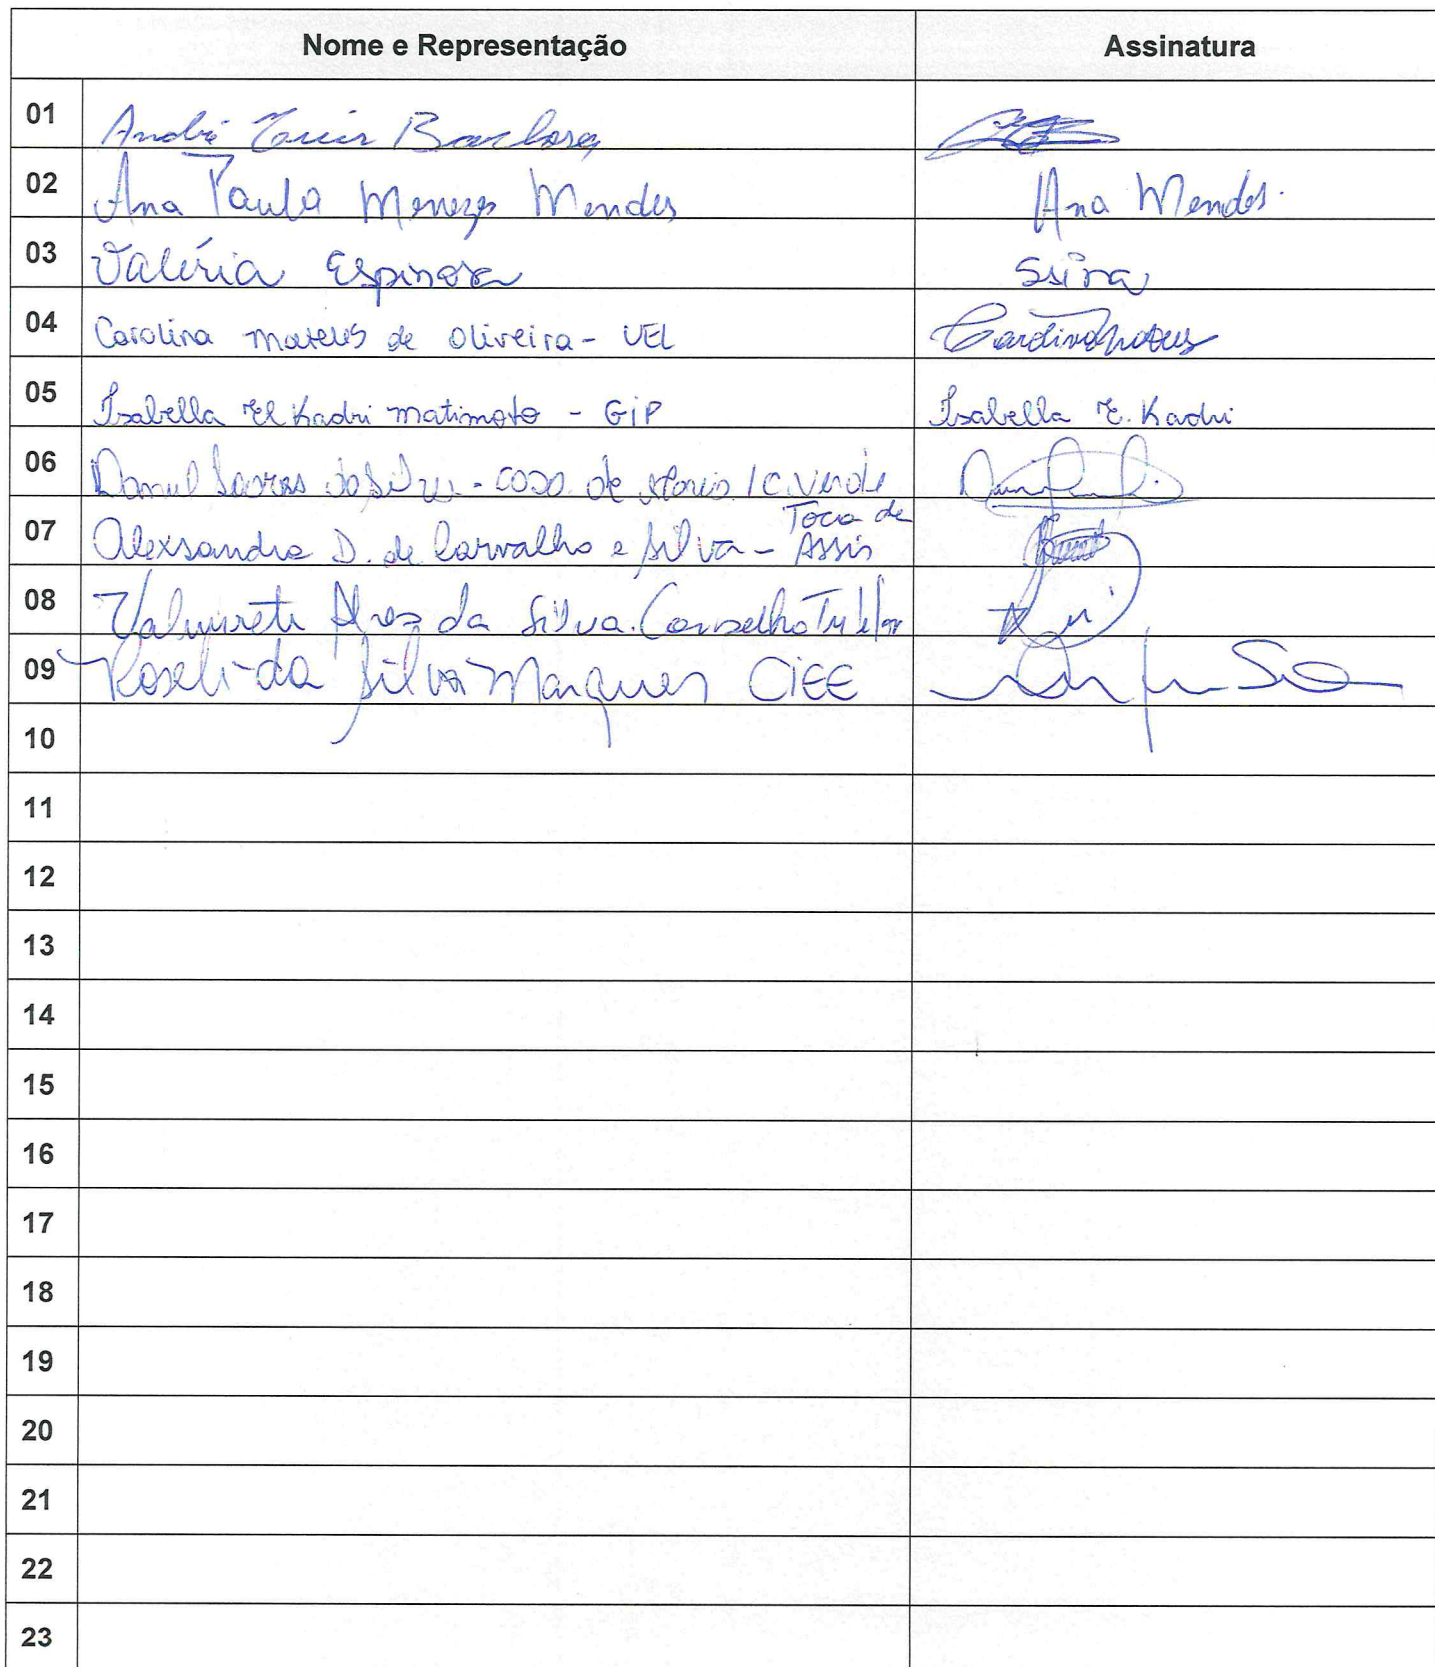 Nome e Representação Assinatura
01 André Luis Barbosa
02 Ana Paula Menezes Mendes Ana Mendes.
03 Valéria Espinosa
04 Carolina Mateus de Oliveira - UEL Carolina Mateus
05 Isabella El Kadri Matimoto - GIP Isabella E. Kadri
06 Daniel Soares da Silva - Casa de Maria / C. Verde
07 Alexsandra D. de Carvalho e Silva - Toca de Assis
08 Alves da Silva. Conselho Tutelar
09 Roseli da Silva Marques CIEE
10
11
12
13
14
15
16
17
18
19
20
21
22
23